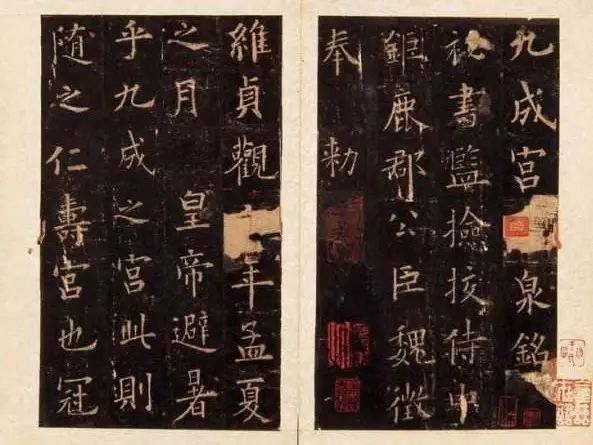 九成宮 泉銘
秘書監撿挍侍中
鉅鹿郡公臣魏徵
奉勅
維貞觀 年孟夏
之月 皇帝避暑
乎九成之宮此則
随之仁壽宮也冠